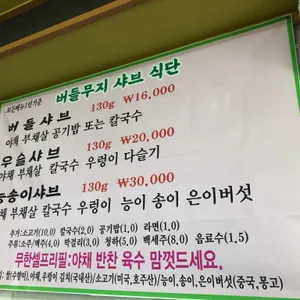 모든메뉴1인기준
버들무지 샤브 식단
버들샤브 130g ₩16,000
야채 부채살 공기밥 또는 칼국수
우슬샤브 130g ₩20,000
야채 부채살 칼국수 우렁이 다슬기
능송이샤브 130g ₩30,000
야채 부채살 칼국수 우렁이 능이 송이 은이버섯
추가:소고기(10,0) 칼국수(2.0) 공기밥(1.0) 라면(1.0)
주류:소주/맥주(4,0) 막걸리(3.0) 청하(5.0) 백세주(8.0) 음료수(1.5)
무한셀프리필:야채 반찬 육수 맘껏드세요.
쌀(수향미),야채,우렁이 김치(국내산)/소고기(미국,호주산)/능이,송이,은이버섯(중국,몽고)